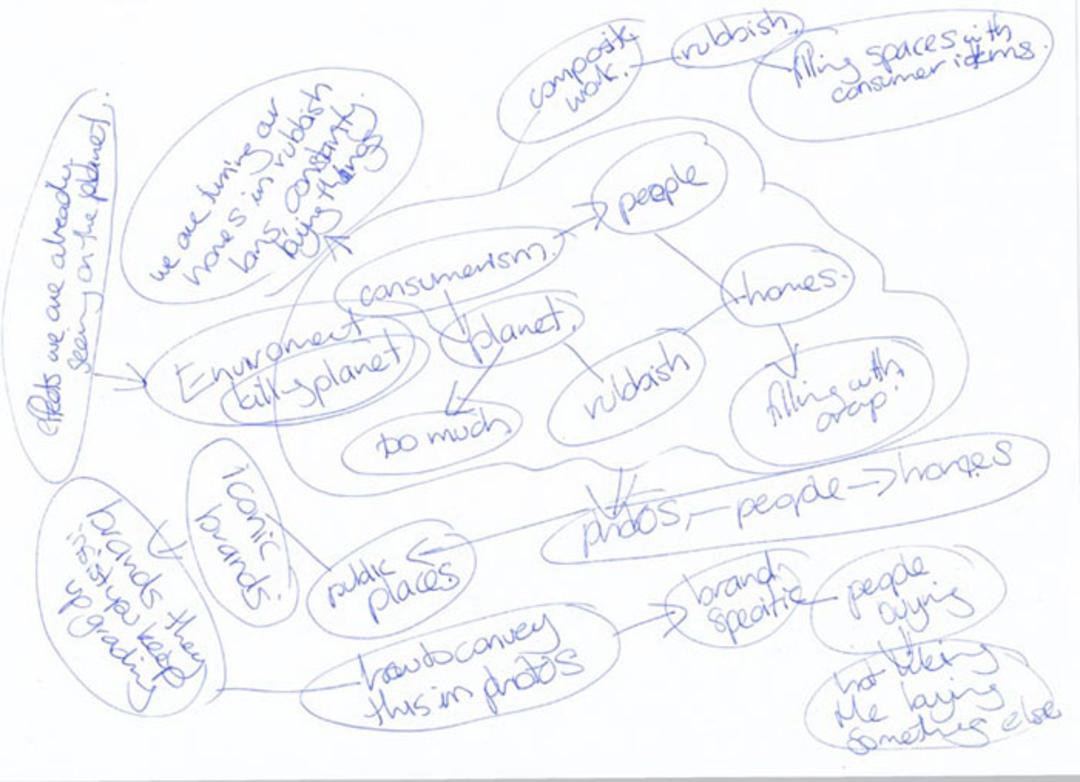 composite
work.
rubbish.
filling spaces with
consumer items.
effects we are already
seeing on the planet.
we are turning our
homes in rubbish
constantly
buying things
people
consumerism.
homes.
planet.
Enviroment
killing planet
rubbish
filling with
crap
too much
photos, – people → homes
iconic
brands.
public
places
brands they
insist you keep
upgrading
how to convey
this in photos
brand
specific
people
buying
not liking
me buying
something else